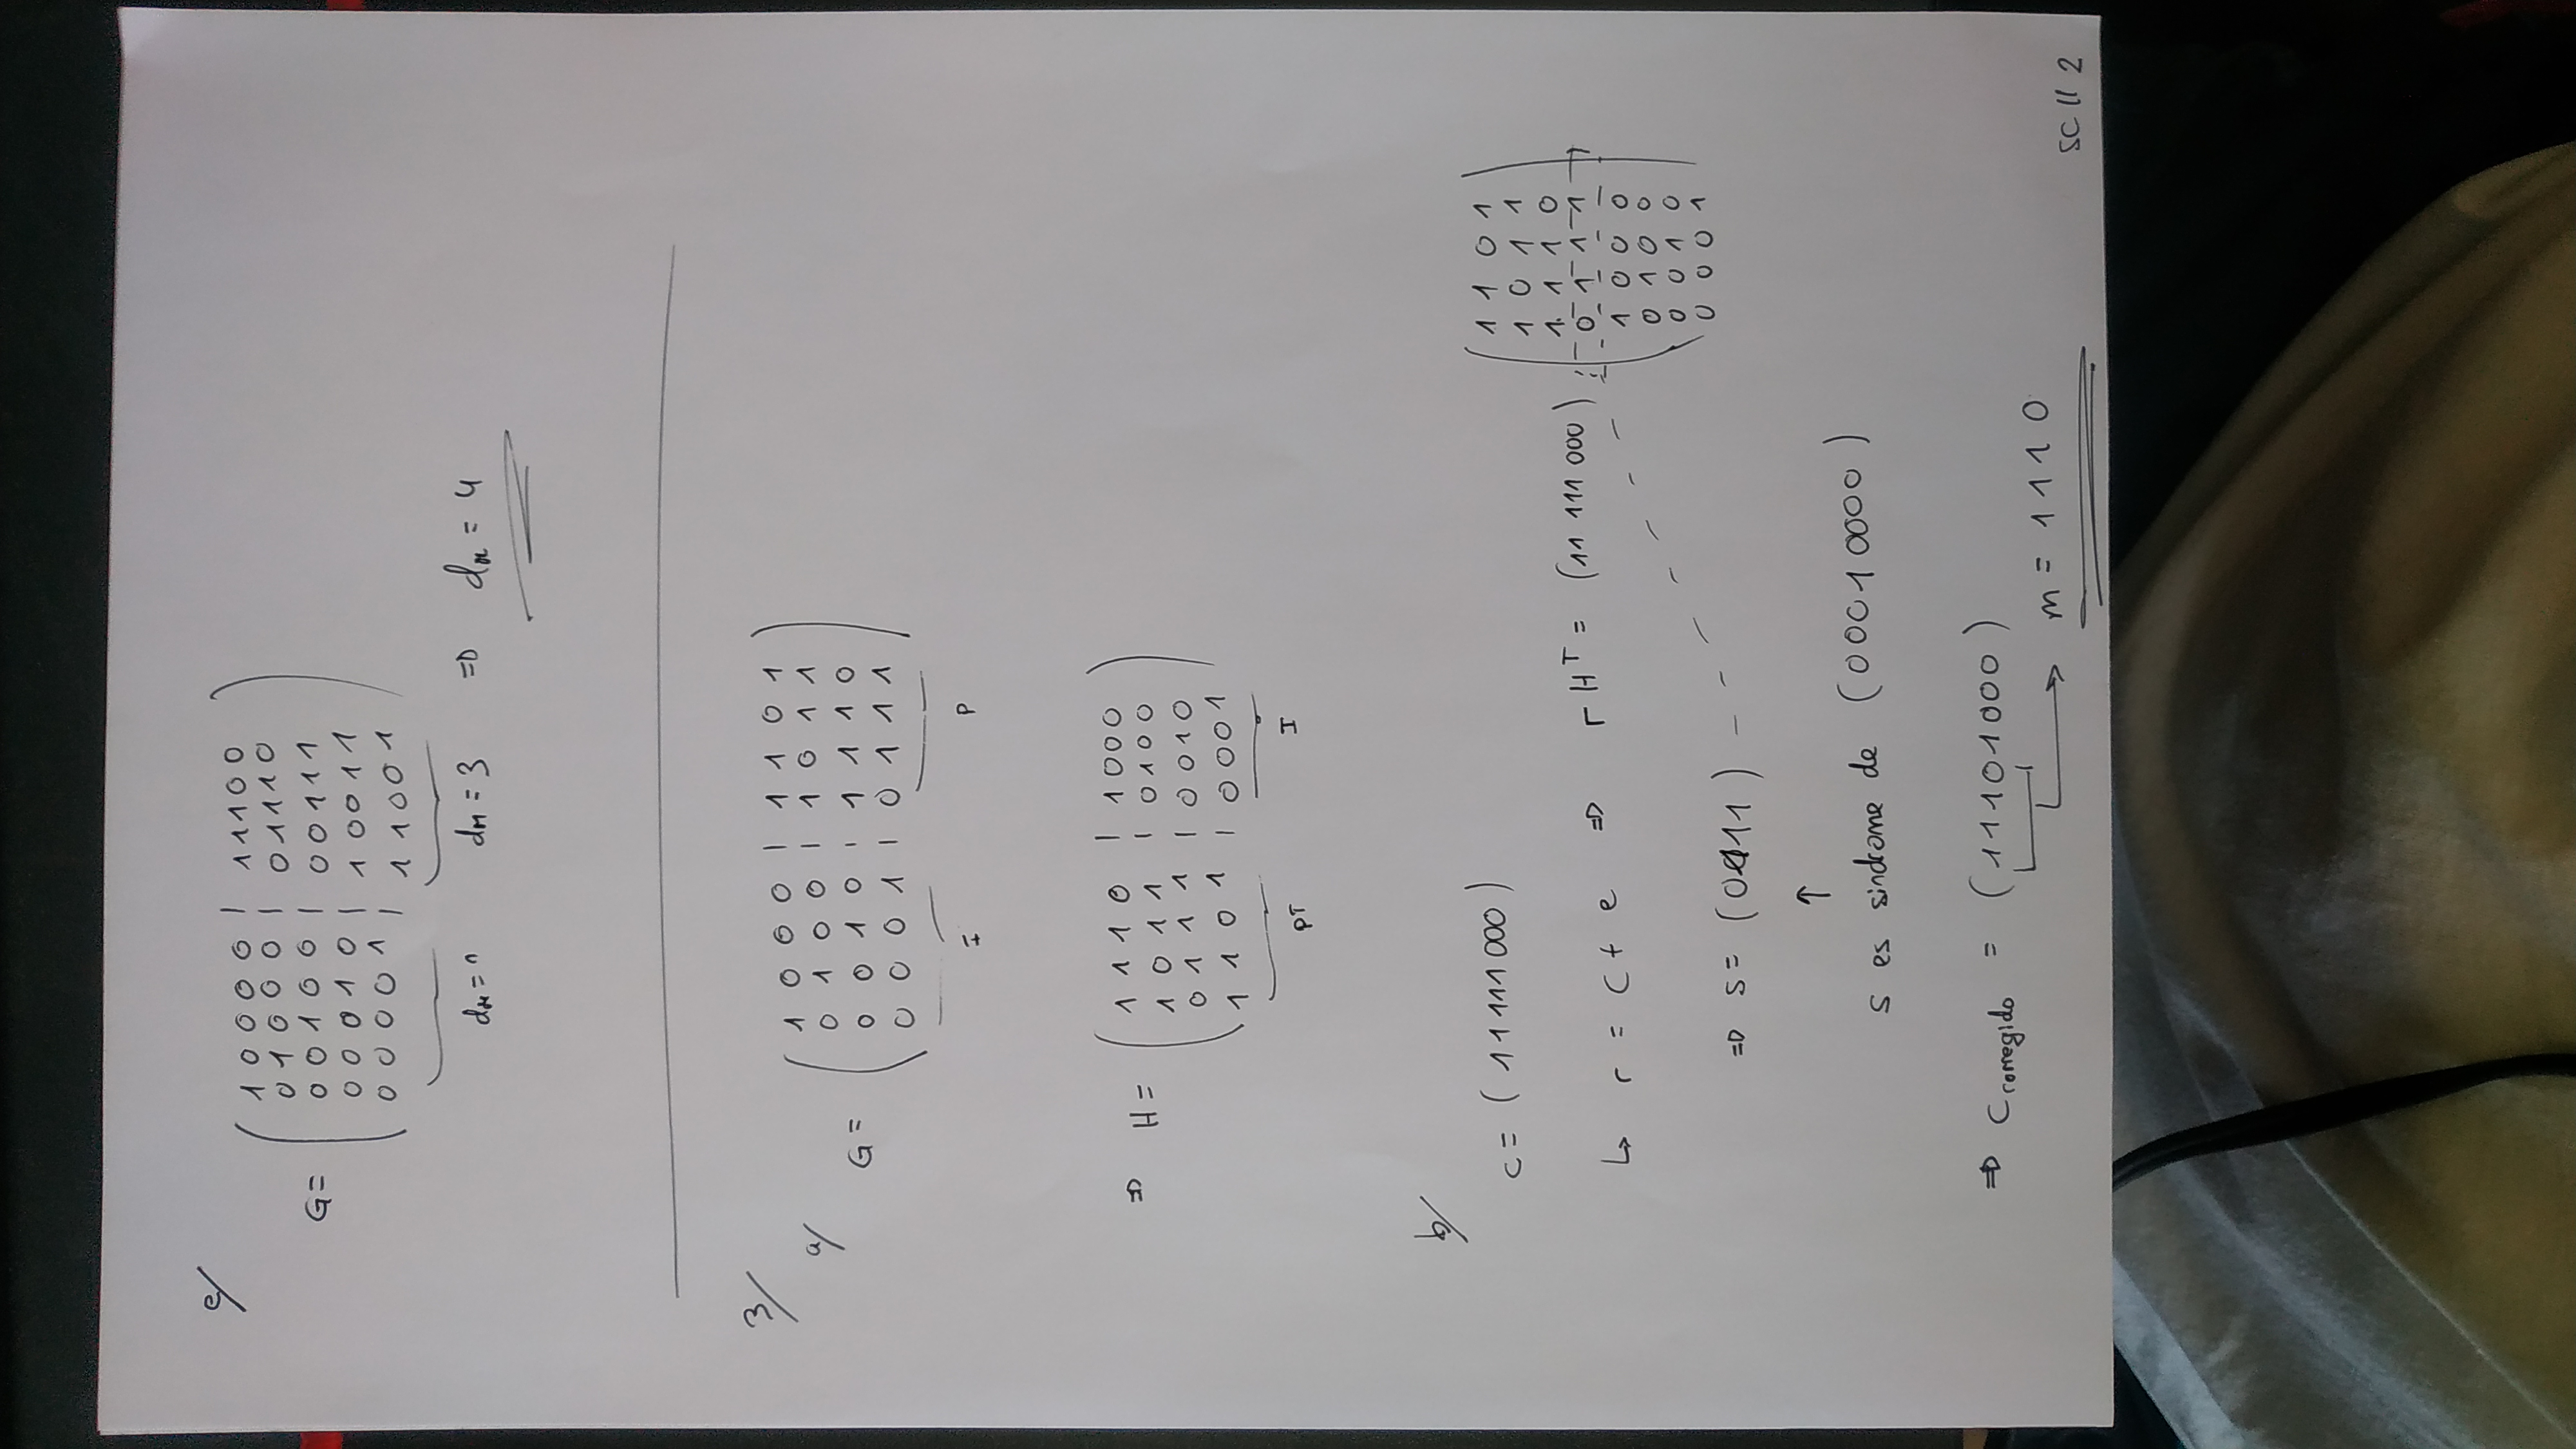 e/
G =
1 0 0 0 0 | 1 1 1 0 0
0 1 0 0 0 | 0 1 1 1 0
0 0 1 0 0 | 0 0 1 1 1
0 0 0 1 0 | 1 0 0 1 1
0 0 0 0 1 | 1 1 0 0 1
dm = 1 dm = 3 => dm = 4
3/
a/
G =
1 0 0 0 | 1 1 0 1
0 1 0 0 | 1 0 1 1
0 0 1 0 | 1 1 1 0
0 0 0 1 | 0 1 1 1
I P
=> H =
1 1 1 0 | 1 0 0 0
1 0 1 1 | 0 1 0 0
0 1 1 1 | 0 0 1 0
1 1 0 1 | 0 0 0 1
PT I
b/
c = (11111000)
↳ r = c + e => r HT = (11 111 000)
1 1 0 1
1 0 1 1
1 1 1 0
0 1 1 1
1 0 0 0
0 1 0 0
0 0 1 0
0 0 0 1
=> s = (0111)
↑
s es sindrome de (00010000)
=> Ccorregido = (11101000)
m = 1110
SC || 2